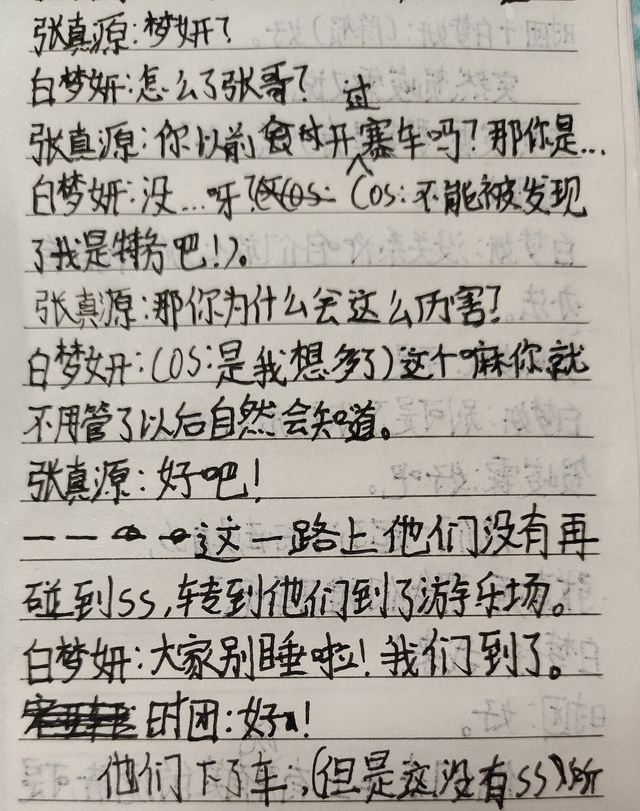 张真源:梦妍?
白梦妍:怎么了张哥?
张真源:你以前开过赛车吗?那你是...
白梦妍:没...呀?(OS:不能被发现
了我是特务吧!)。
张真源:那你为什么会这么厉害?
白梦妍:(OS:是我想多了)这个嘛你就
不用管了以后自然会知道。
张真源:好吧!
一一这一路上他们没有再
碰到SS,转到他们到了游乐场。
白梦妍:大家别睡啦!我们到了。
时团:好!
他们下了车,(但是这没有SS)所